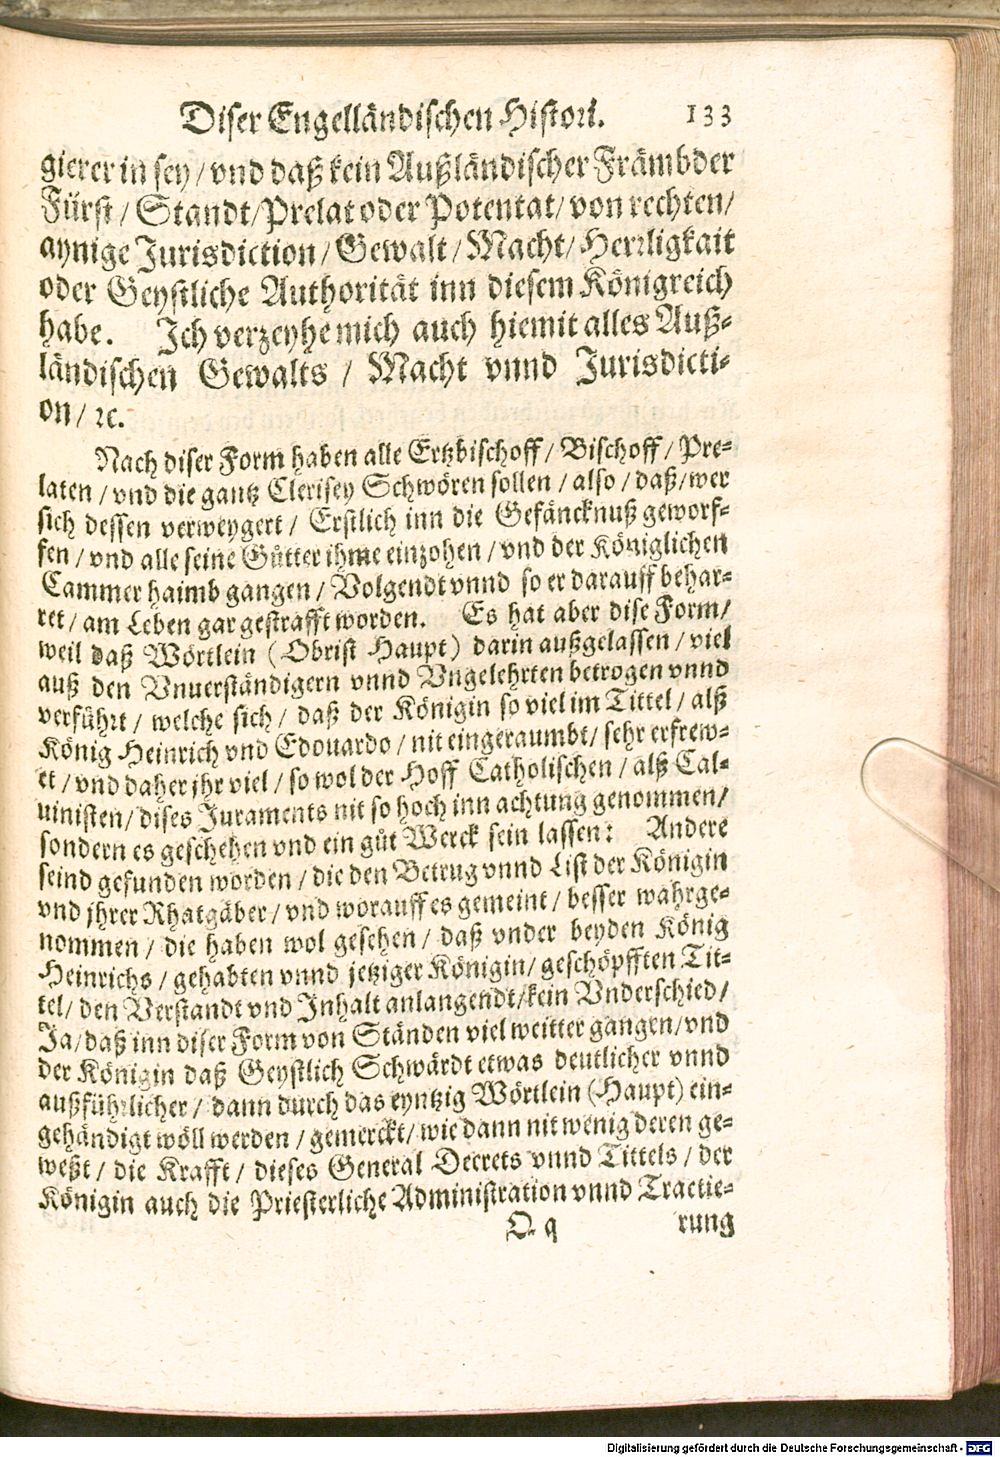 Diser Engelländischen Histori. 133
gierer in sey / vnd daß kein Außländischer Främbder
Fürst / Standt / Prelat oder Potentat / von rechten /
aynige Jurisdiction / Gewalt / Macht / Herrligkait
oder Geystliche Authorität inn diesem Königreich
habe. Ich verzeyhe mich auch hiemit alles Auß-
ländischen Gewalts / Macht vnnd Jurisdicti-
on / ꝛc.
Nach diser Form haben alle Ertzbischoff / Bischoff / Pre-
laten / vnd die gantz Clerisey Schwören sollen / also / daß / wer
sich dessen verweygert / Erstlich inn die Gefäncknuß geworf-
fen / vnd alle seine Gütter ihme einzohen / vnd der Königlichen
Cammer haimb gangen / Volgendt vnnd so er darauff behar-
ret / am Leben gar gestrafft worden. Es hat aber dise Form /
weil daß Wörtlein (Obrist Haupt) darin außgelassen / viel
auß den Vnuerständigern vnnd Vngelehrten betrogen vnnd
verführt / welche sich / daß der Königin so viel im Tittel / alß
König Heinrich vnd Edouardo / nit eingeraumbt / sehr erfrew-
et / vnd daher jhr viel / so wol der Hoff Catholischen / alß Cal-
uinisten / dises Juraments nit so hoch inn achtung genommen /
sondern es geschehen vnd ein gůt Werck sein lassen: Andere
seind gefunden worden / die den Betrug vnnd List der Königin
vnd jhrer Rhatgäber / vnd worauff es gemeint / besser wahrge-
nommen / die haben wol gesehen / daß vnder beyden König
Heinrichs / gehabten vnnd jetziger Königin / geschöpfften Tit-
tel / den Verstandt vnd Inhalt anlangendt / kein Vnderschied /
Ja / daß inn diser Form von Ständen viel weitter gangen / vnd
der Königin daß Geystlich Schwärdt etwas deutlicher vnnd
außführlicher / dann durch das eyntzig Wörtlein (Haupt) ein-
gehändigt wöll werden / gemerckt / wie dann nit wenig deren ge-
weßt / die Krafft / dieses General Decrets vnnd Tittels / der
Königin auch die Priesterliche Administration vnnd Tractie-
Q q rung
Digitalisierung gefördert durch die Deutsche Forschungsgemeinschaft - DFG